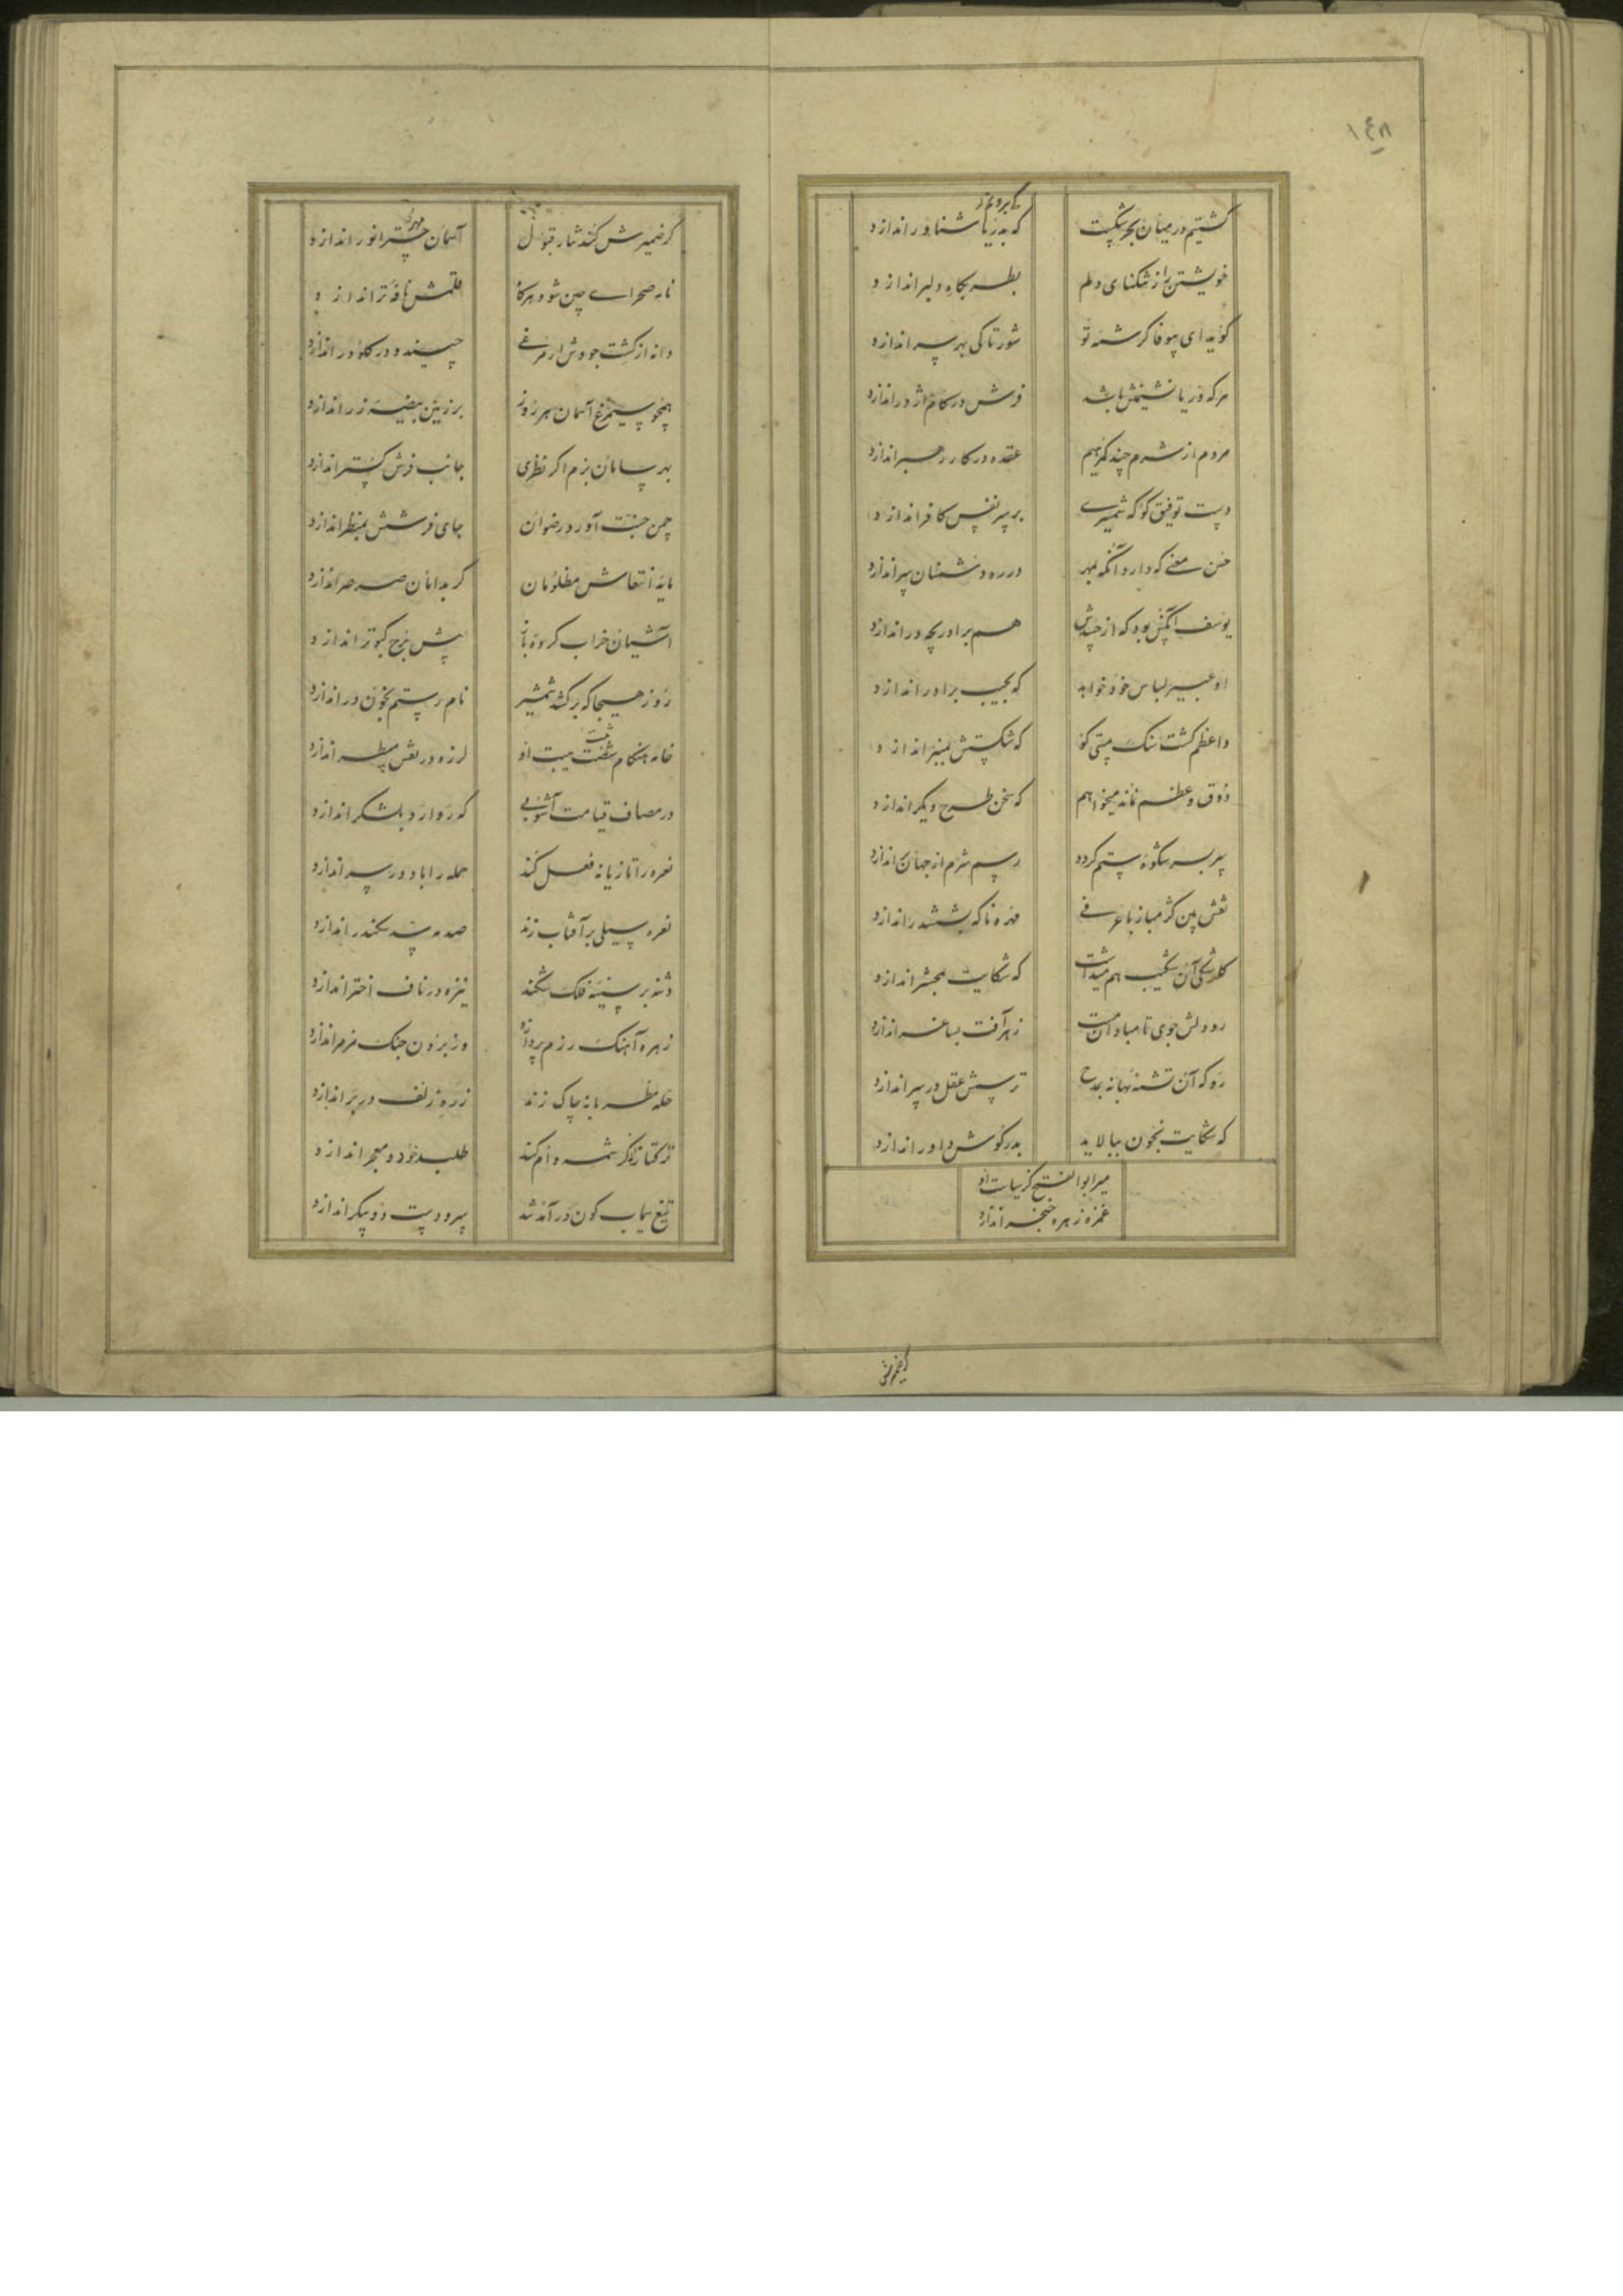 ۱۴۸
کشتیم در میان بحر شکست
که بدریا شناور اندازد
خویشتن را ز تنکنای دلم
گوید ای بیوفا کرشمه تو
شور تا کی بهر سر اندازد
هر که دریا نشینمش باشد
فرش در کام اژدر اندازد
مردم از شرم چند گریم
عقده در کار رهبر اندازد
دست توفیق کو که شمشیری
بر سر نفس کافر اندازد
حسن معنی که دارد آنکه بمهر
در ره دشمنان سر اندازد
هم برادر بچه در اندازد
او عبیر لباس خود خواهد
که بجیب برادر اندازد
واعظم کشت سنک مستی کو
که شکستش بمنبر اندازد
ذوق وعظم نماند میخواهم
که سخن طرح دیگر اندازد
سر بسر شکوه ستم گردد
رسم شرم از جهان اندازد
نقش بین کژ مباز با عرفی
مهره ناکه بششدر اندازد
که شکایت بمحشر اندازد
رو دلش جوی تا مباد آن مست
زهر آفت بساغر اندازد
رو که آن تشنه بهانه بمدح
ترسمش عقل در سر اندازد
که شکایت بخون بیالاید
بدر گوش داور اندازد
میر ابو الفتح کز سیاست او
غمزه زهره خنجر اندازد
گر ضمیرش
گر ضمیرش کند نثار قبول
آسمان چتر انور اندازد
ناف صحرای چین شود هر کاه
قلمش نافه تر اندازد
دانه از کشت جودش ار مرغی
چیند و در کلو در اندازد
همچو سیمرغ آسمان هر روز
بر زمین بیضه زر اندازد
بهر سامان بزم اگر نظری
جانب فرش گستر اندازد
چمن جنت آورد رضوان
جای فرشش بمنظر اندازد
مایه انتعاش مظلومان
گر بدامان صرصر اندازد
آشیان خراب کرده باز
پیش برج کبوتر اندازد
روز هیجا که برکشد شمشیر
نام رستم بخون در اندازد
خامه هنگام هیبت او
لرزه در نقش مسطر اندازد
در مصاف قیامت آشوبی
که ز وا رو بلشکر اندازد
نعره را تازیانه فعل کند
حمله را باد در سر اندازد
نعره سیلی بر آفتاب زند
صدمه سد سکندر اندازد
دشنه بر سینه فلک شکند
نیزه در ناف اختر اندازد
زهره آهنک رزم پردازد
وز برون چنک مزمر اندازد
حله مطربانه چاک زند
زره زلف در بر اندازد
ترکتاز از کرشمه وام کند
طلبد خود و معجر اندازد
تیغ سیماب گون در آمد شد
سر و دست دو پیکر اندازد